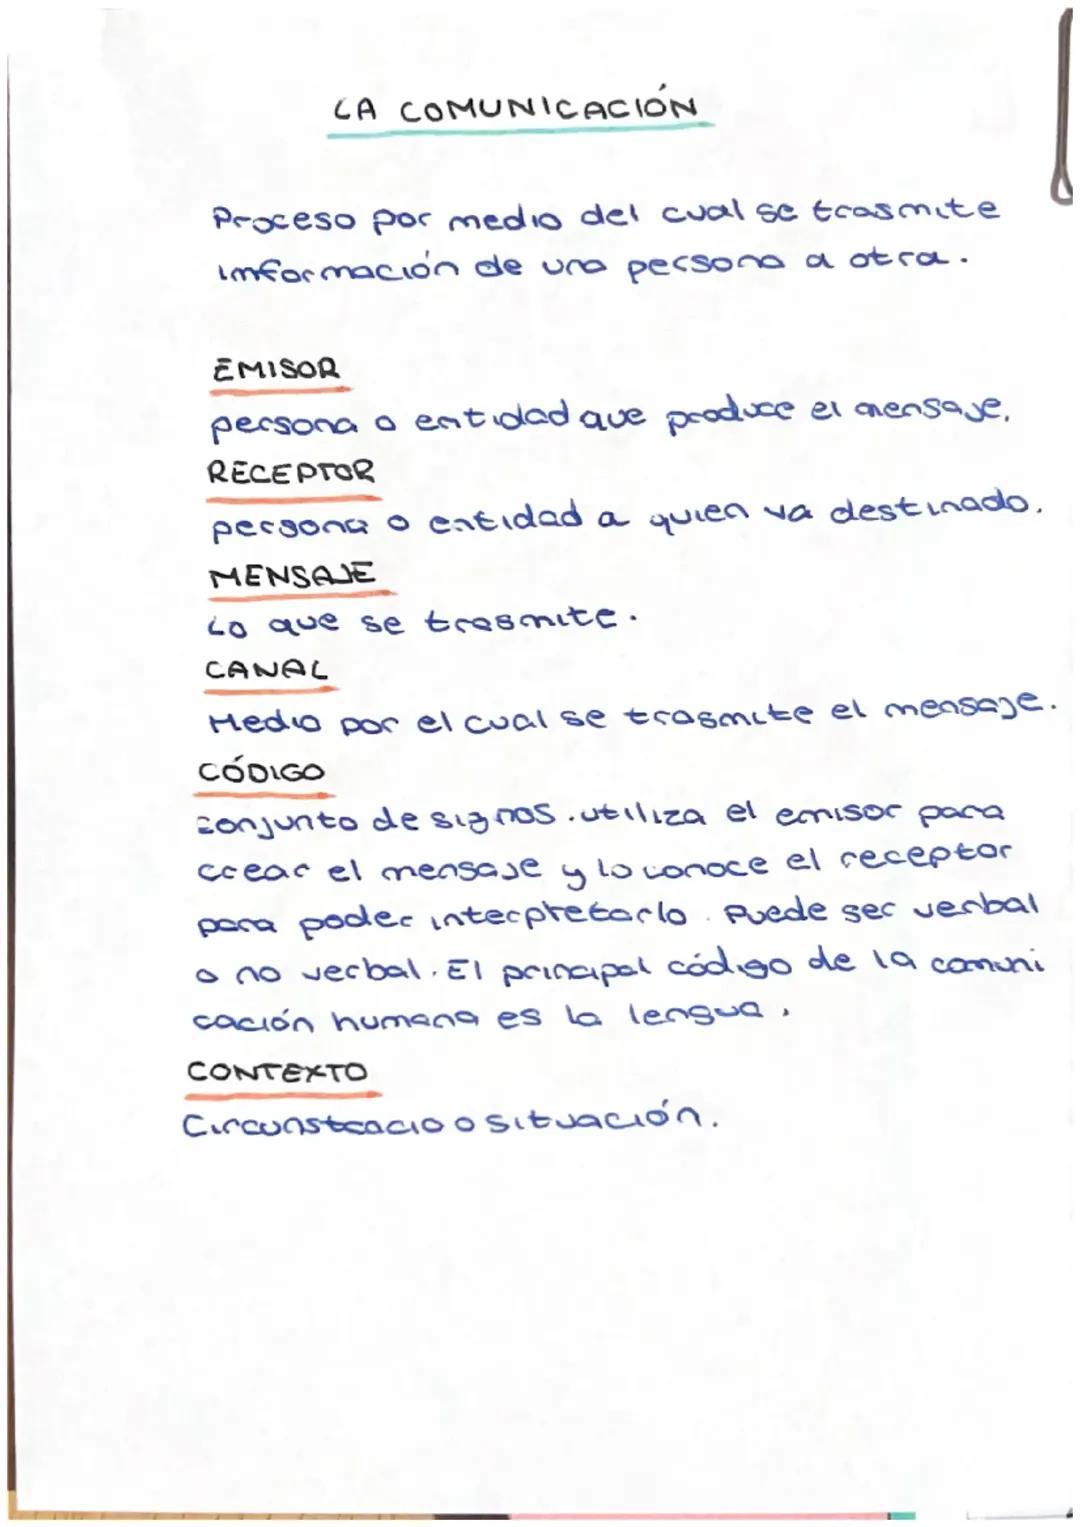 LA COMUNICACIÓN
Proceso por medio del cual se trasmite
imformación de una persona a otra.
EMISOR
persona o entidad que produce el mensaje.
RECEPTOR
persona o entidad a quien va destinado.
MENSAJE
Lo que se trasmite.
CANAL
Medio por el cual se trasmite el mensaje.
CÓDIGO
conjunto de signos. utiliza el emisor para
crear el mensaje y lo conoce el receptor
para poder interpretarlo. Puede ser verbal
o no verbal. El principal código de la comuni
cación humana es la lengua.
CONTEXTO
Circunstancia o situación.